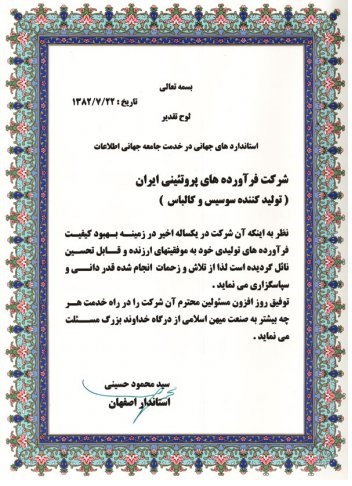 بسمه تعالی
تاریخ : ۱۳۸۲/۷/۲۲
لوح تقدیر
استانداردهای جهانی در خدمت جامعه جهانی اطلاعات
شرکت فرآورده های پروتئینی ایران
( تولید کننده سوسیس و کالباس )
نظر به اینکه آن شرکت در یکساله اخیر در زمینه بهبود کیفیت
فرآورده های تولیدی خود به موفقیتهای ارزنده و قابل تحسین
نائل گردیده است لذا از تلاش و زحمات انجام شده قدر دانی و
سپاسگزاری می نماید .
توفیق روز افزون مسئولین محترم آن شرکت را در راه خدمت هر
چه بیشتر به صنعت میهن اسلامی از درگاه خداوند بزرگ مسئلت
می نماید .
سید محمود حسینی
استاندار اصفهان